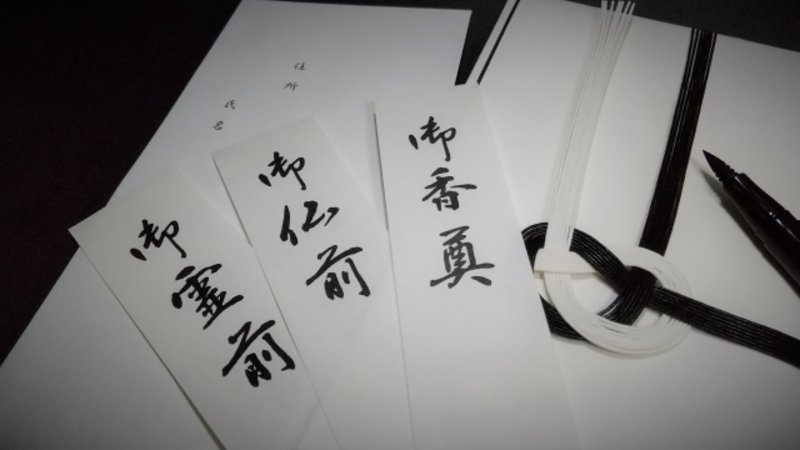 御香奠
御仏前
御霊前
住所
氏名